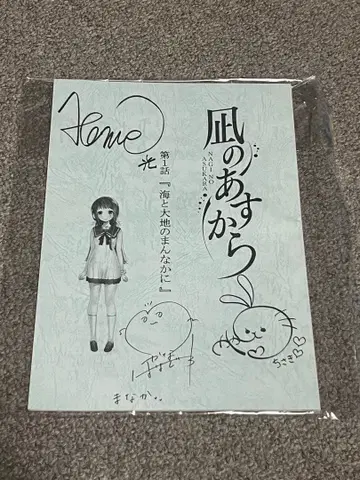 凪のあすから
NAGI NO
ASUKARA
第1話『海と大地のまんなかに』
光
ちさき
まなか..